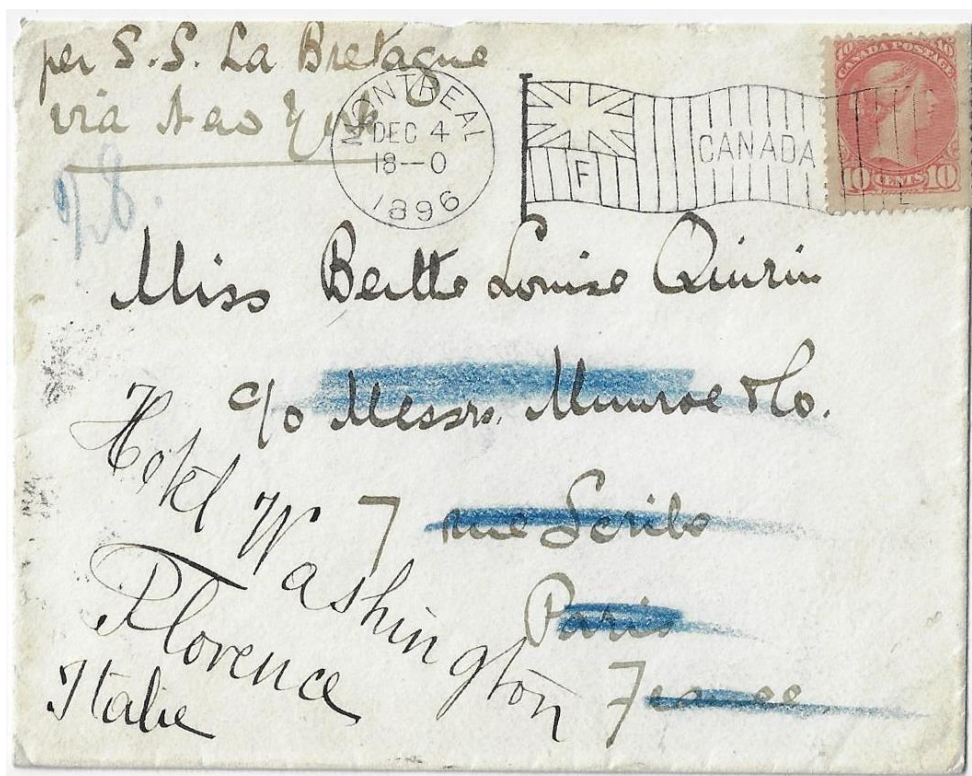 per S.S. La Bretagne
via New York
MONTREAL
DEC 4
18--0
1896
F
CANADA
CANADA POSTAGE
10 CENTS 10
Miss Louise Quirin
c/o Messrs. Munroe & Co.
7 rue Scribe
Paris
France
Hotel Washington
Florence
Italie